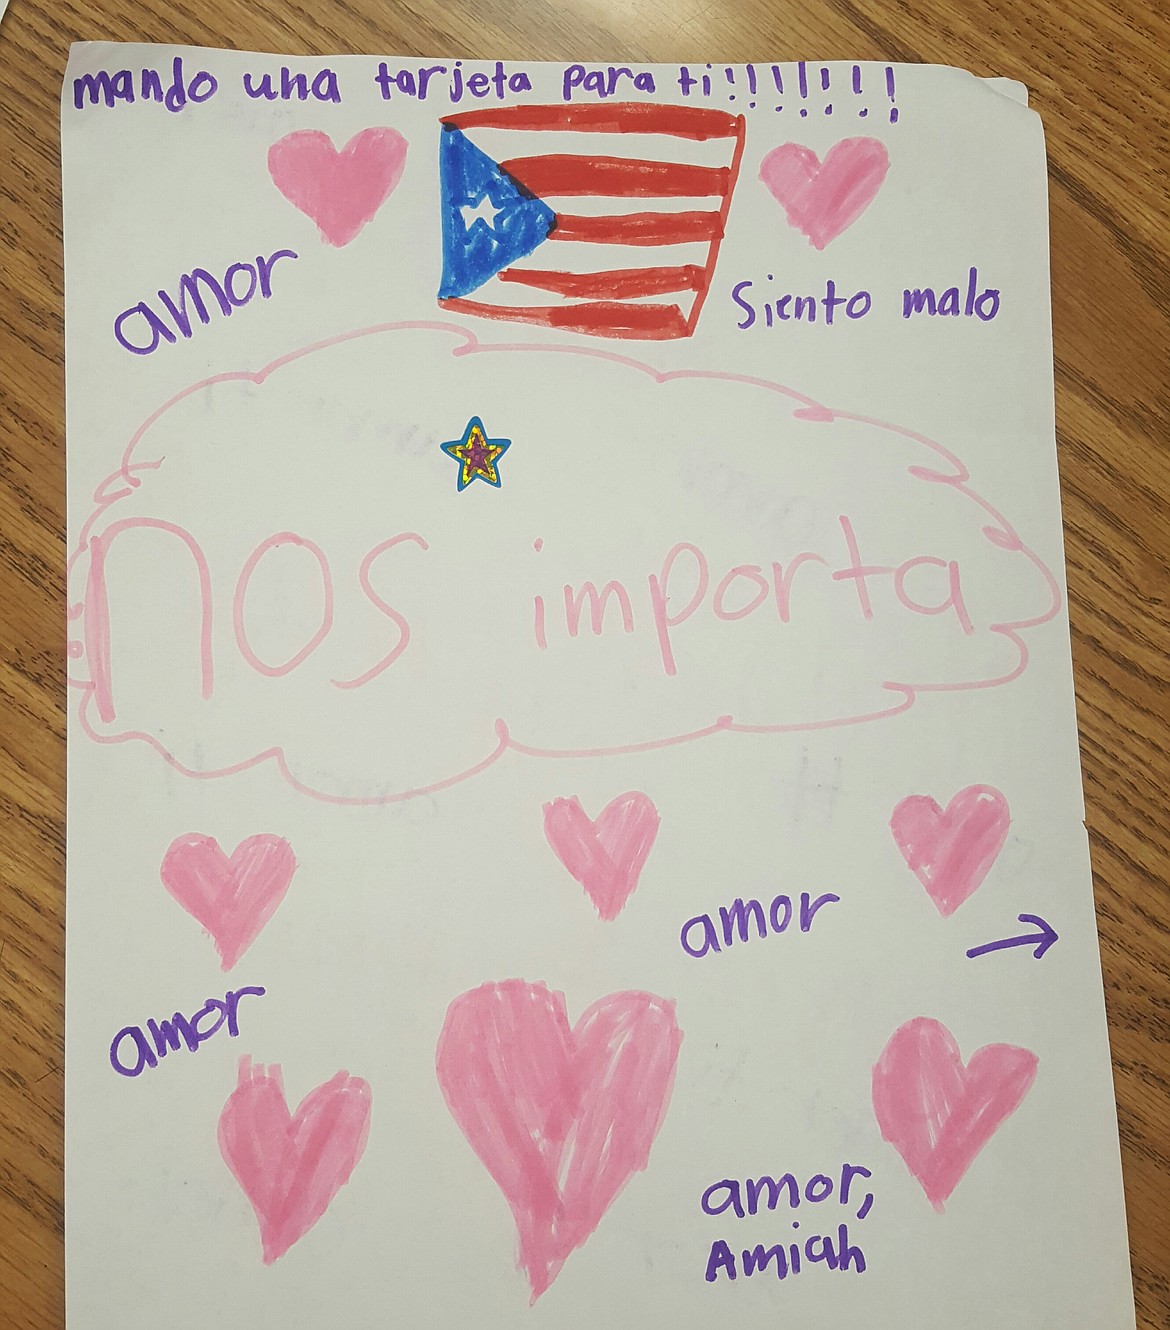 mando una tarjeta para ti!!!!!!!
amor
Siento malo
nos importa
amor
amor
amor,
Amiah